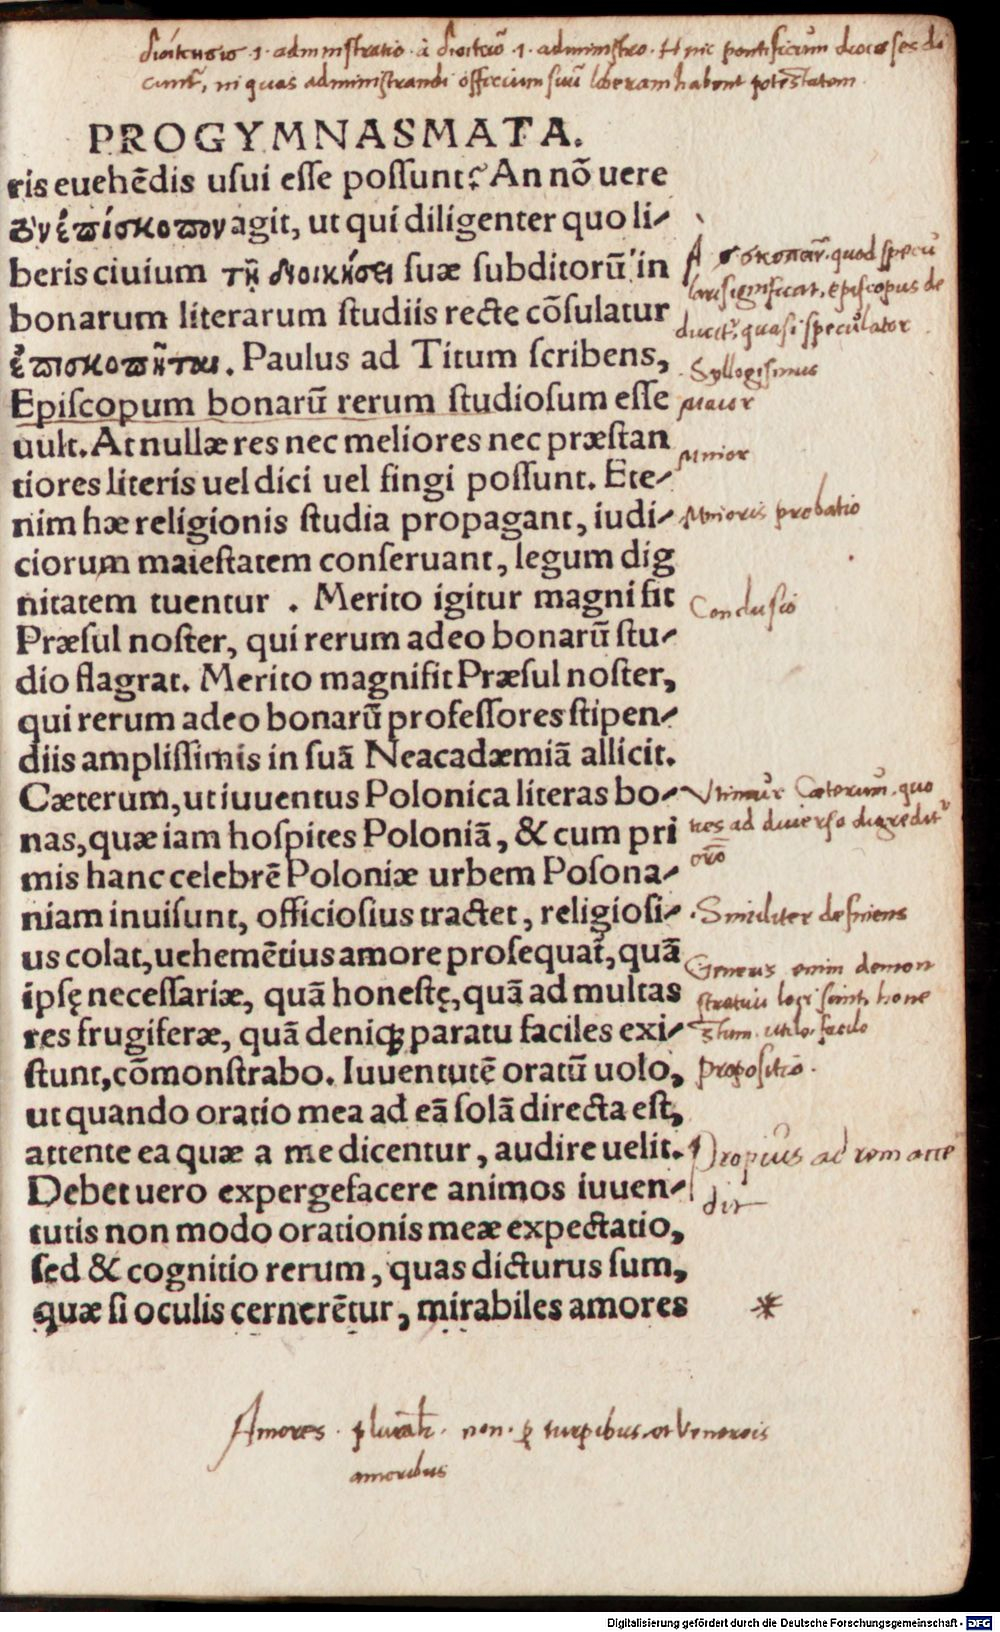 διοίκησις .1. administratio. à διοικέω .1. administro. Hinc pontificum dioceses di
cunt᷑, in quas administrandi officium suū liberam habent potestatem.
PROGYMNASMATA.
ris euehēdis usui esse possunt? An nō uere
τὸν ἐπίσκοπον agit, ut qui diligenter quo li-
beris ciuium τῇ διοικήσει suæ subditorū in
bonarum literarum studiis recte cōsulatur
ἐπισκοπῆται. Paulus ad Titum scribens,
Episcopum bonarū rerum studiosum esse
uult. At nullæ res nec meliores nec præstan
tiores literis uel dici uel fingi possunt. Ete-
nim hæ religionis studia propagant, iudi-
ciorum maiestatem conseruant, legum dig
nitatem tuentur. Merito igitur magni fit
Præsul noster, qui rerum adeo bonarū stu-
dio flagrat. Merito magnifit Præsul noster,
qui rerum adeo bonarū professores stipen-
diis amplissimis in suā Neacadæmiā allicit.
Cæterum, ut iuuentus Polonica literas bo-
nas, quæ iam hospites Poloniā, & cum pri
mis hanc celebrē Poloniæ urbem Posona-
niam inuisunt, officiosius tractet, religiosi-
us colat, uehemētius amore prosequat᷑, quā
ipsę necessariæ, quā honestę, quā ad multas
res frugiferæ, quā deniq; paratu faciles exi-
stunt, cōmonstrabo. Iuuentutē oratū uolo,
ut quando oratio mea ad eā solā directa est,
attente ea quæ a me dicentur, audire uelit.
Debet uero expergefacere animos iuuen-
tutis non modo orationis meæ expectatio,
sed & cognitio rerum, quas dicturus sum,
quæ si oculis cernerētur, mirabiles amores
A quod specu
lari significat, episcopus de
ducit᷑, quasi speculator
Syllogismus
Maior
Minor
Minoris probatio
Conclusio
Vtimur Cæterum, quo
ties ad diuersa digredit᷑
orō
Similiter definiens
Generis enim demon
stratiui loci sunt, hone
stum. utile. facile
Propositio.
Propius ad rem acce
dit
*
Amores. pluralr̄. non. ꝑ turpibus et Venereis
amoribus
Digitalisierung gefördert durch die Deutsche Forschungsgemeinschaft - DFG